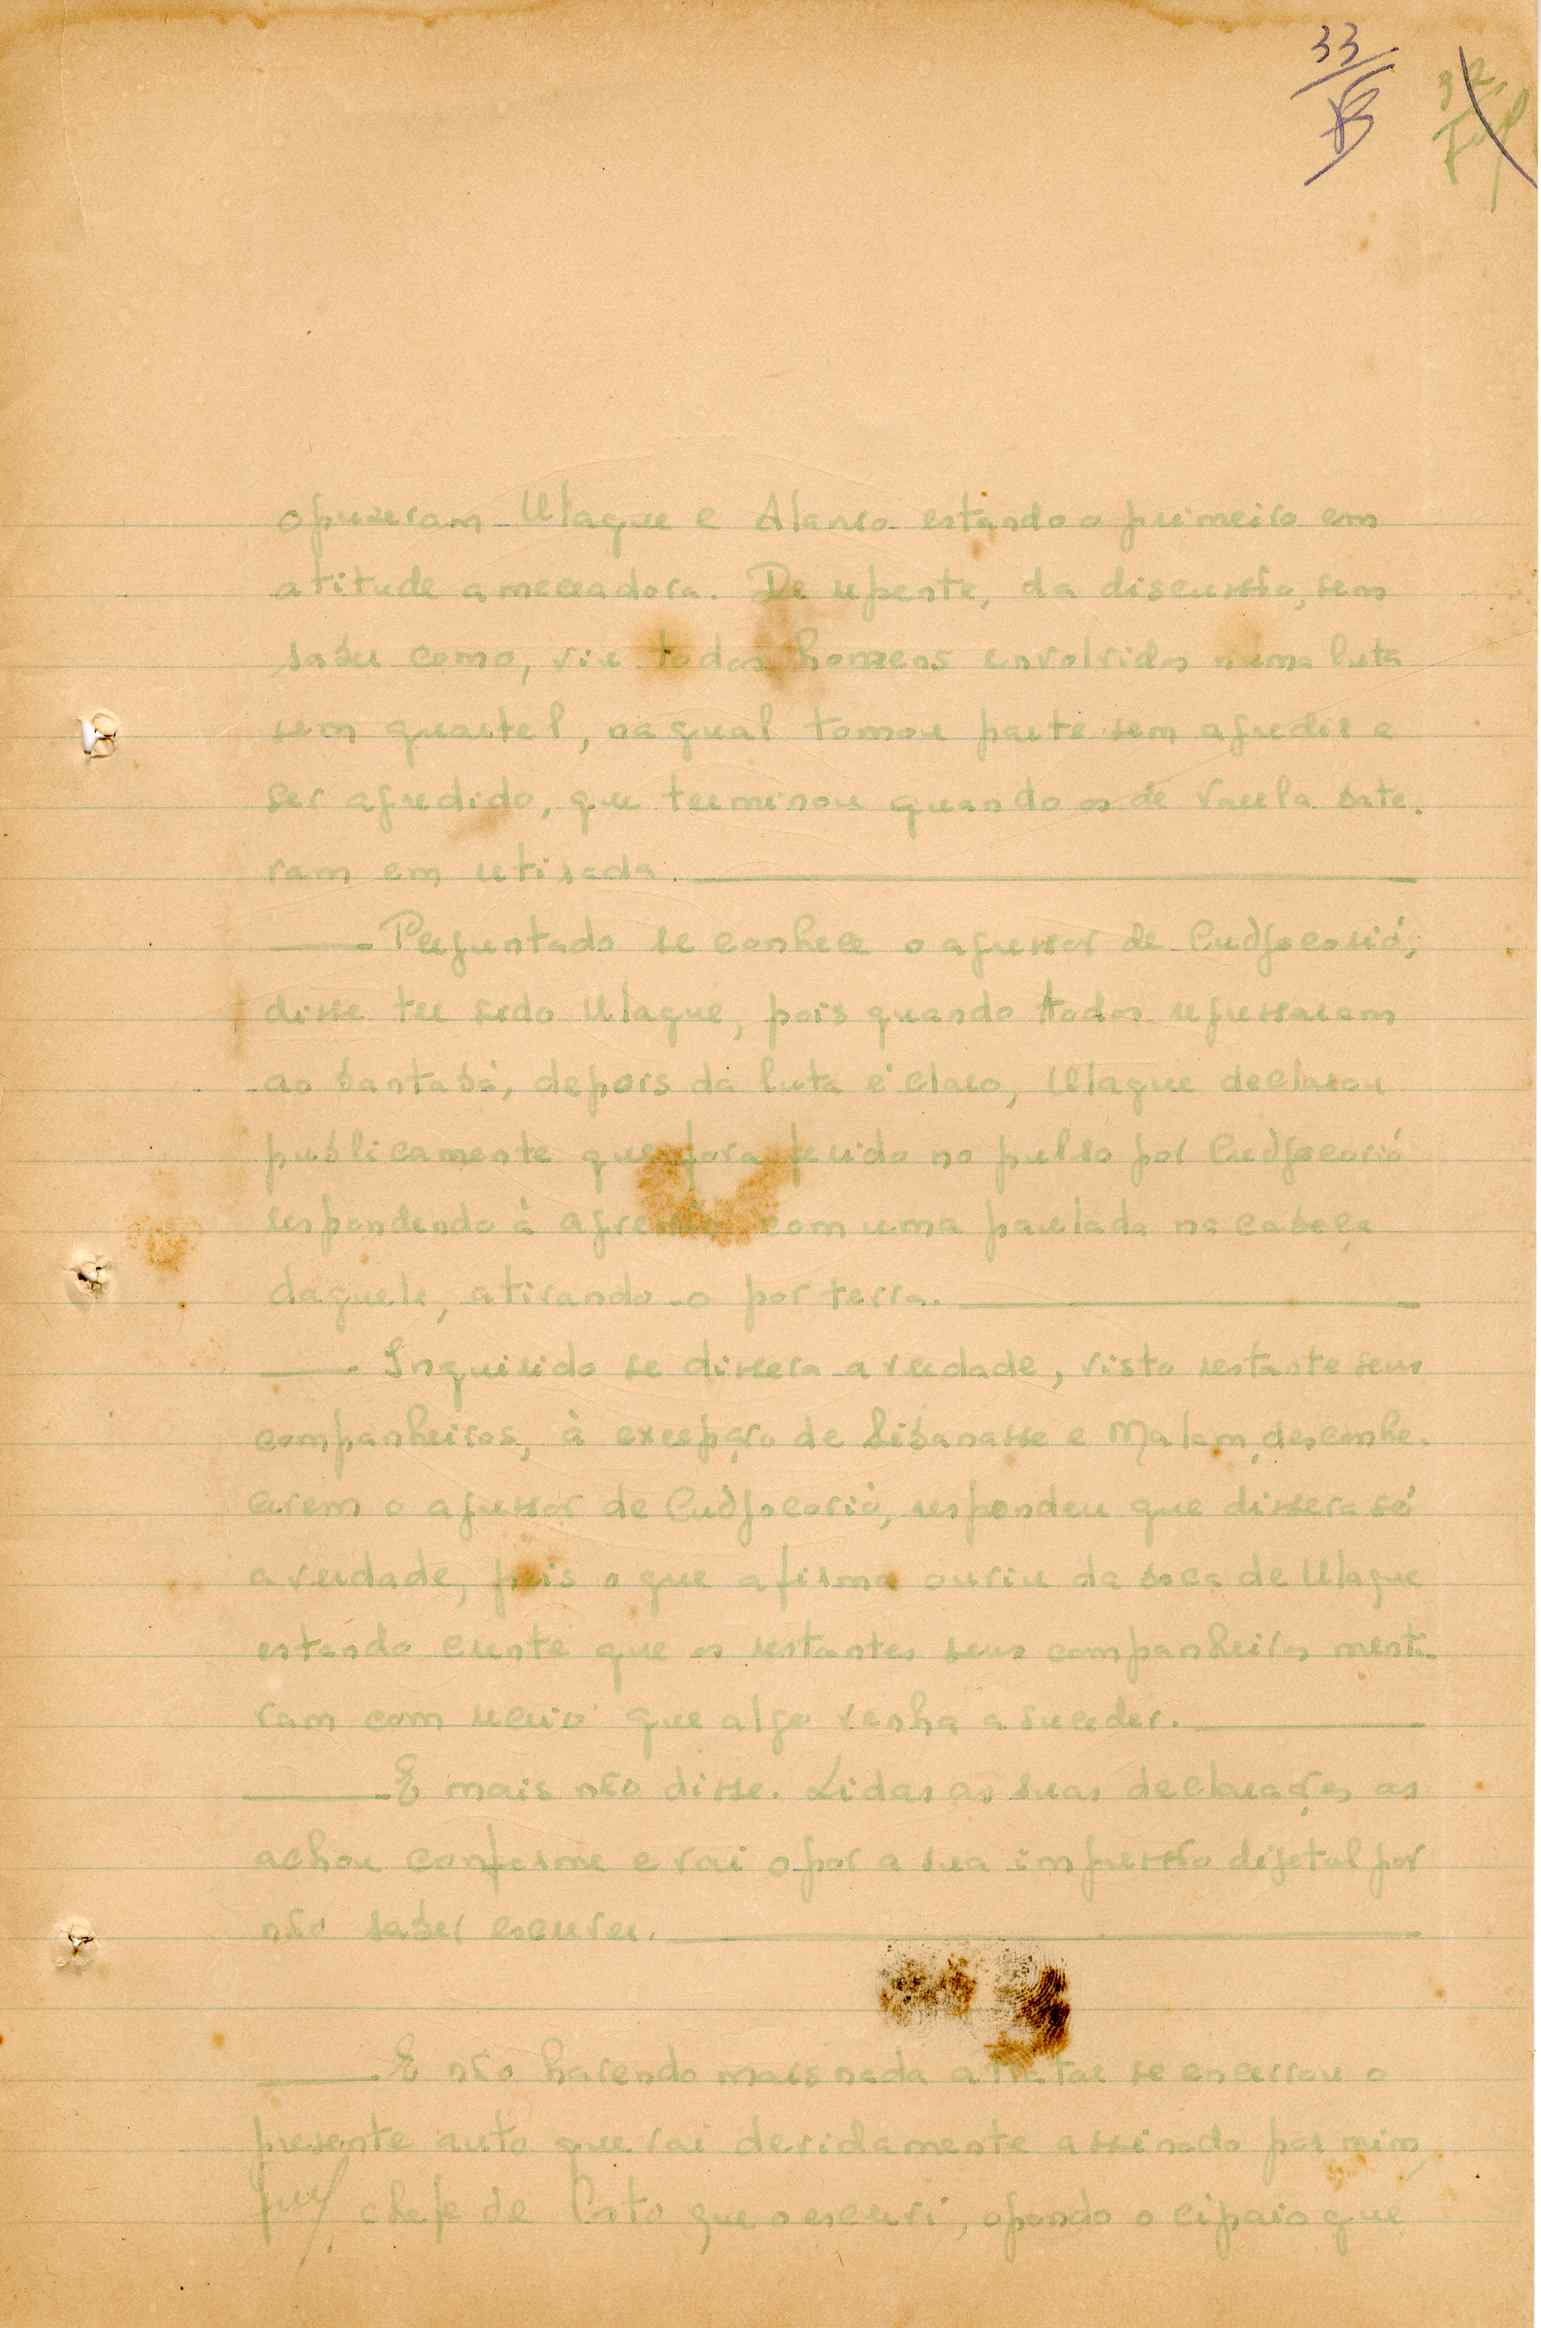 33
32
opuzeram Ulaque e Alanso estando o primeiro em
atitude ameaçadora. De repente, da discussão, sem
saber como, viu todos homens envolvidos numa luta
sem quartel, na qual tomou parte sem agredir e
ser agredido, que terminou quando os de Varela bate-
ram em retirada.
Perguntado se conhece o agressor de Cudjocorió,
disse ter sido Ulaque, pois quando todos regressaram
ao Bantabá, depois da luta é claro, Ulaque declarou
publicamente que fora ferido no pulso por Cudjocorió
respondendo à agressão com uma paulada na cabeça
daquele, atirando-o por terra.
Inquirido se dissera a verdade, visto restante seus
companheiros, à excepção de Sibanasse e Malam, desconhe-
cerem o agressor de Cudjocorió, respondeu que dissera só
a verdade, pois o que afirma ouviu da boca de Ulaque
estando ciente que os restantes seus companheiros menti-
ram com receio que algo venha a suceder.
E mais não disse. Lidas as suas declarações as
achou conforme e vai opor a sua impressão digetal por
não saber escrever.
E não havendo mais nada a tratar se encerrou o
presente auto que vai devidamente assinado por mim
chefe de Posto que o escrevi, opondo o cipaio que